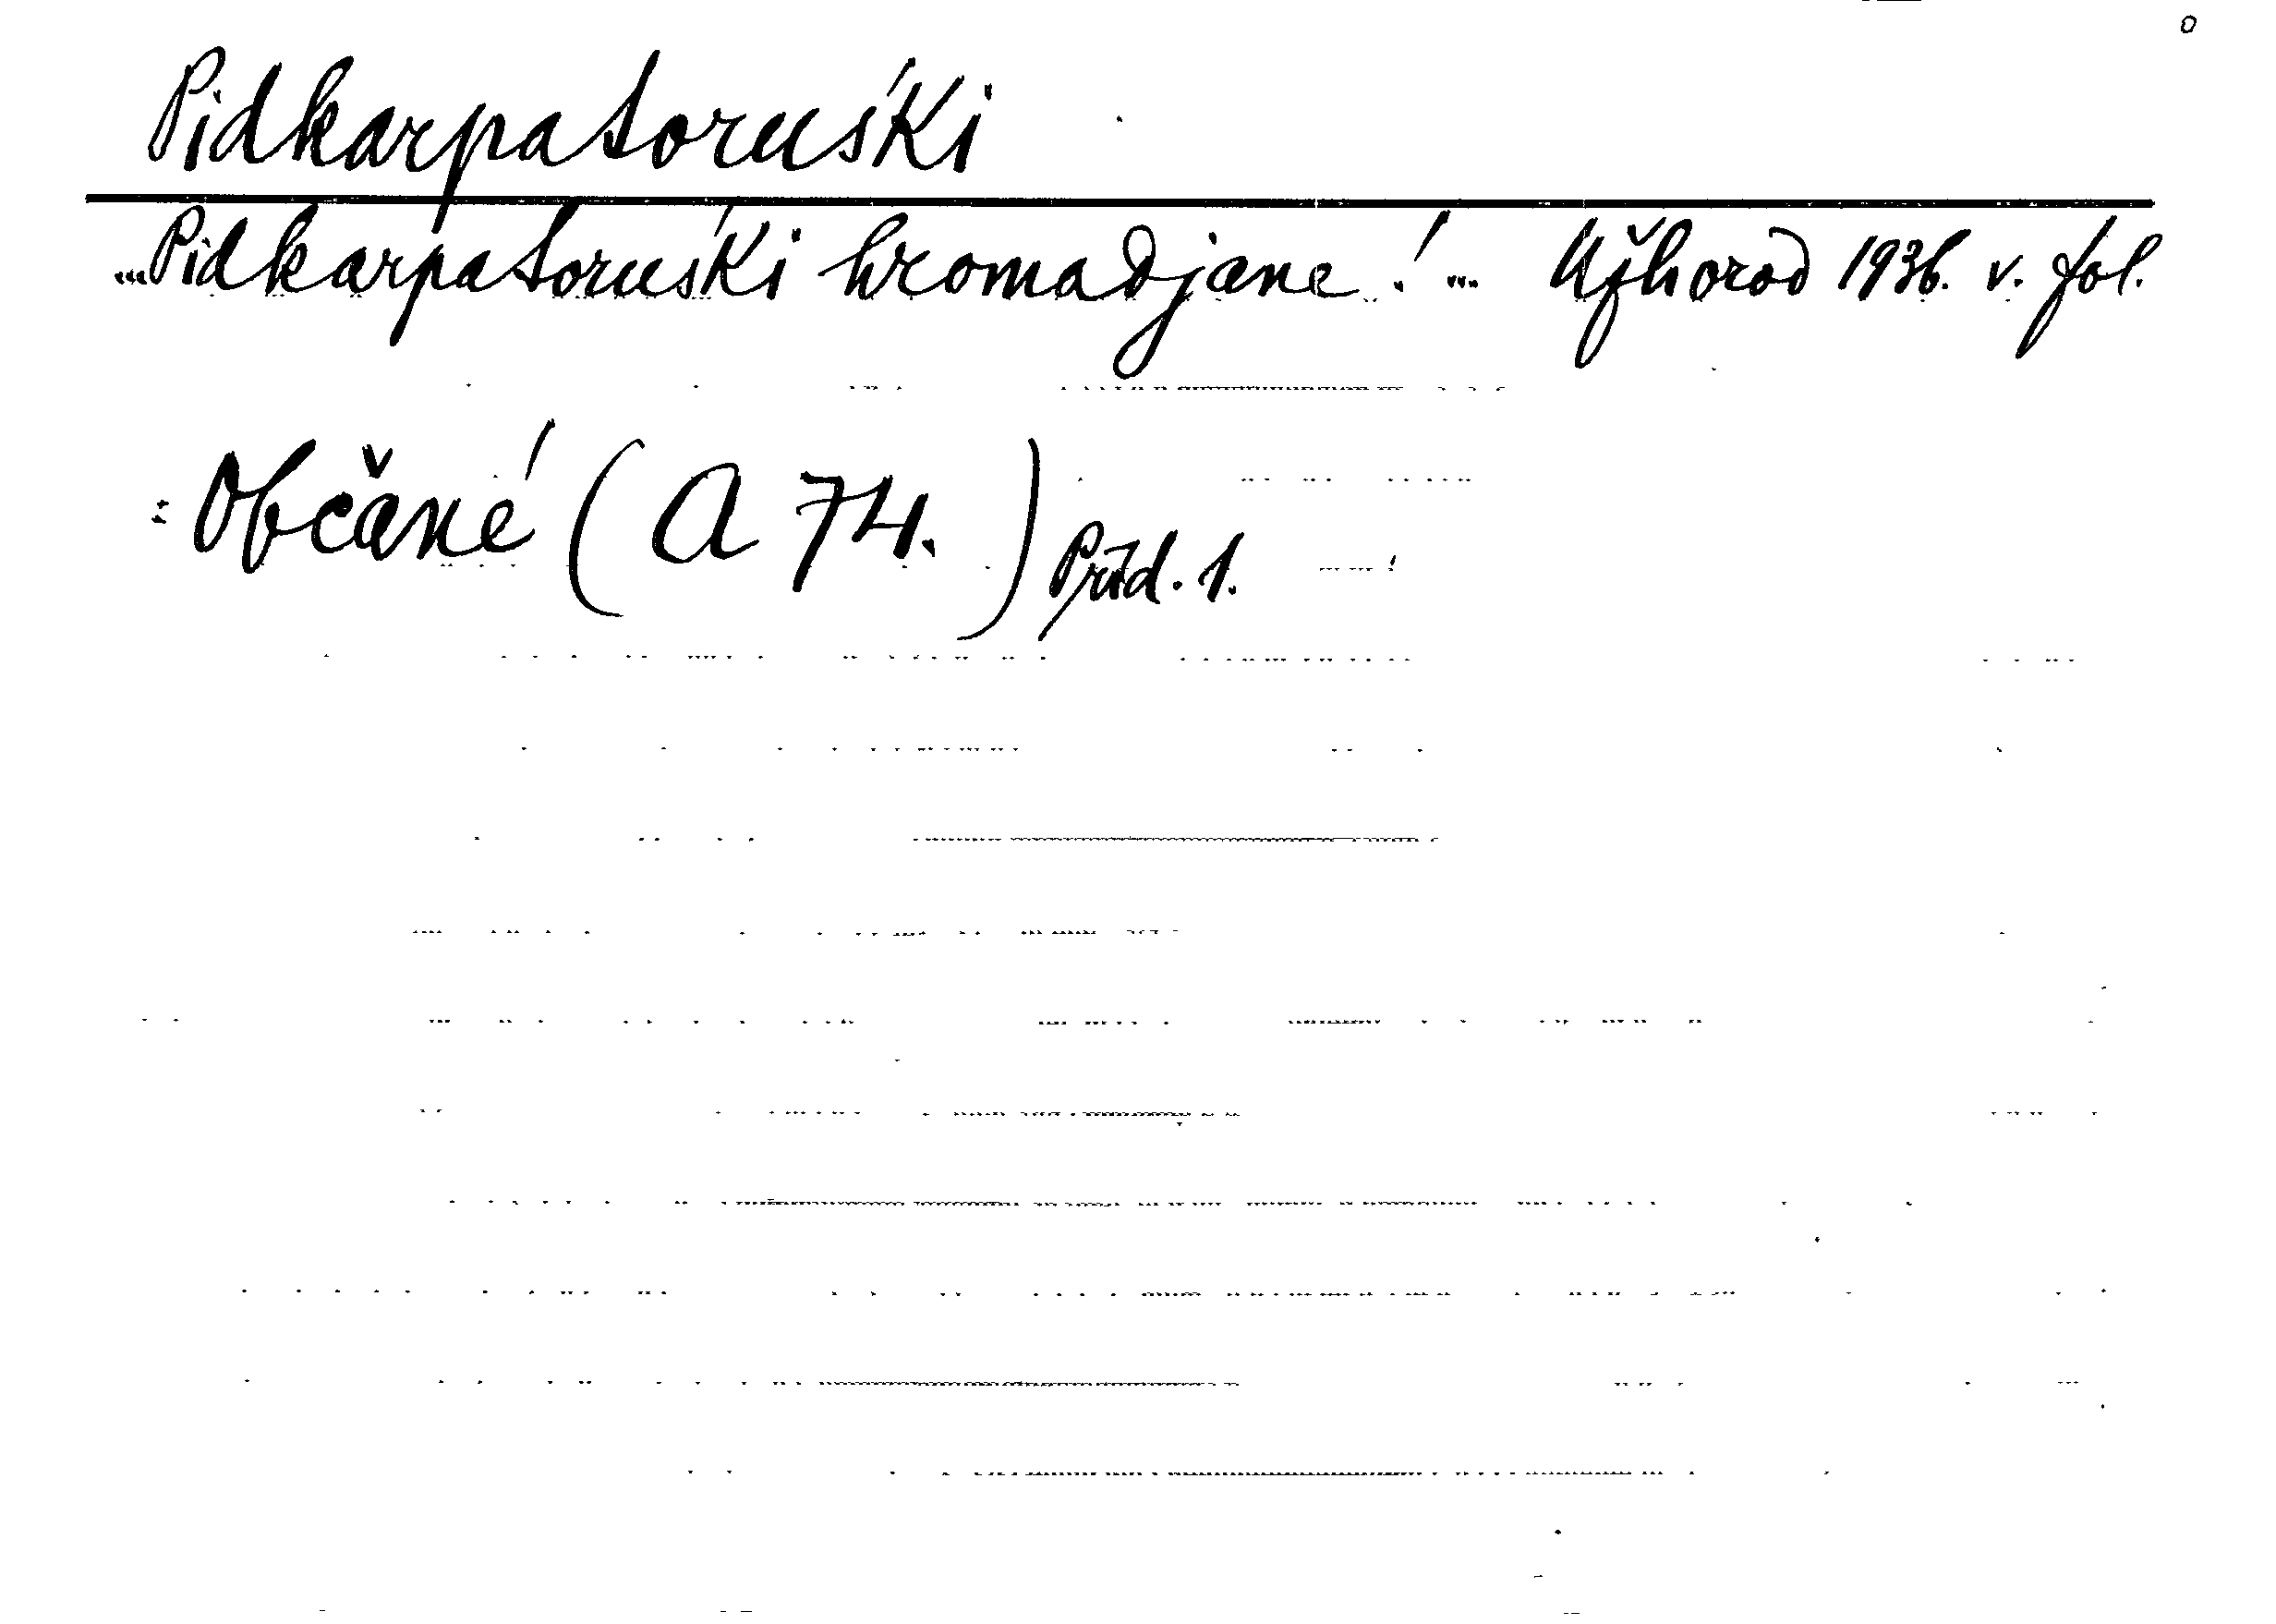 Pidkarpatoruśki
... Pidkarpatoruśki hromadjane! ... Užhorod 1936. v. fol.
= Občané (A 74.) Příd. 1.